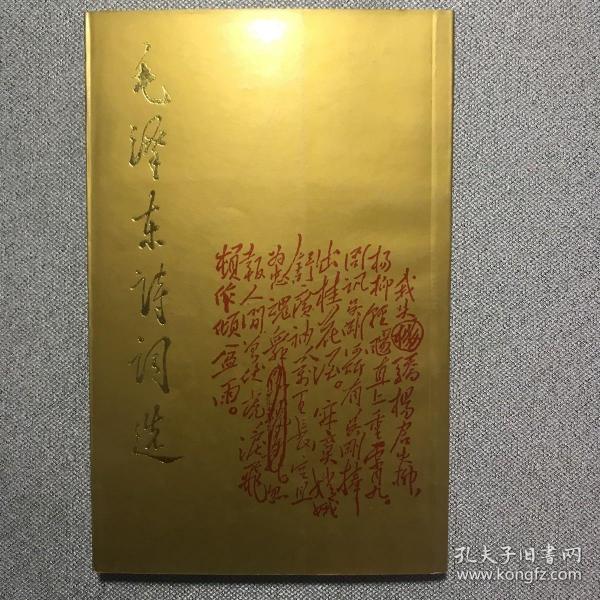 毛泽东诗词选
我失骄杨君失柳,
杨柳轻飏直上重霄九。
问讯吴刚何所有吴刚捧
出桂花酒。寂寞嫦娥
舒广袖万里长空且
为忠魂舞忽
报人间曾伏虎泪飞
顿作倾盆雨。
孔夫子旧书网
www.kongfz.com